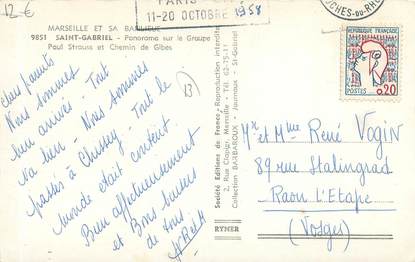 12 €
MARSEILLE ET SA BASILIQUE
9851 SAINT-GABRIEL - Panorama sur le Groupe
Paul Strauss et Chemin de Gibes
PARIS
11-20 OCTOBRE 1958
BOUCHES-DU-RHÔNE
13
chers parents
Nous sommes
bien arrivés - Tout
va bien - Nous sommes
passés à Chessey. Tout le
monde était content.
Bien affectueusement
et Bons baisers
de tous
Société Editions de France, Reproduction interdite
2, Rue Clapier, Marseille - Tél. 62-75-11
Collection BARBAROUX - Journaux - St-Gabriel
RYMER
REPUBLIQUE FRANÇAISE
POSTES 0,20
Mr et Mme René Vogin
89 rue Stalingrad
Raon l'Etape
(Vosges)